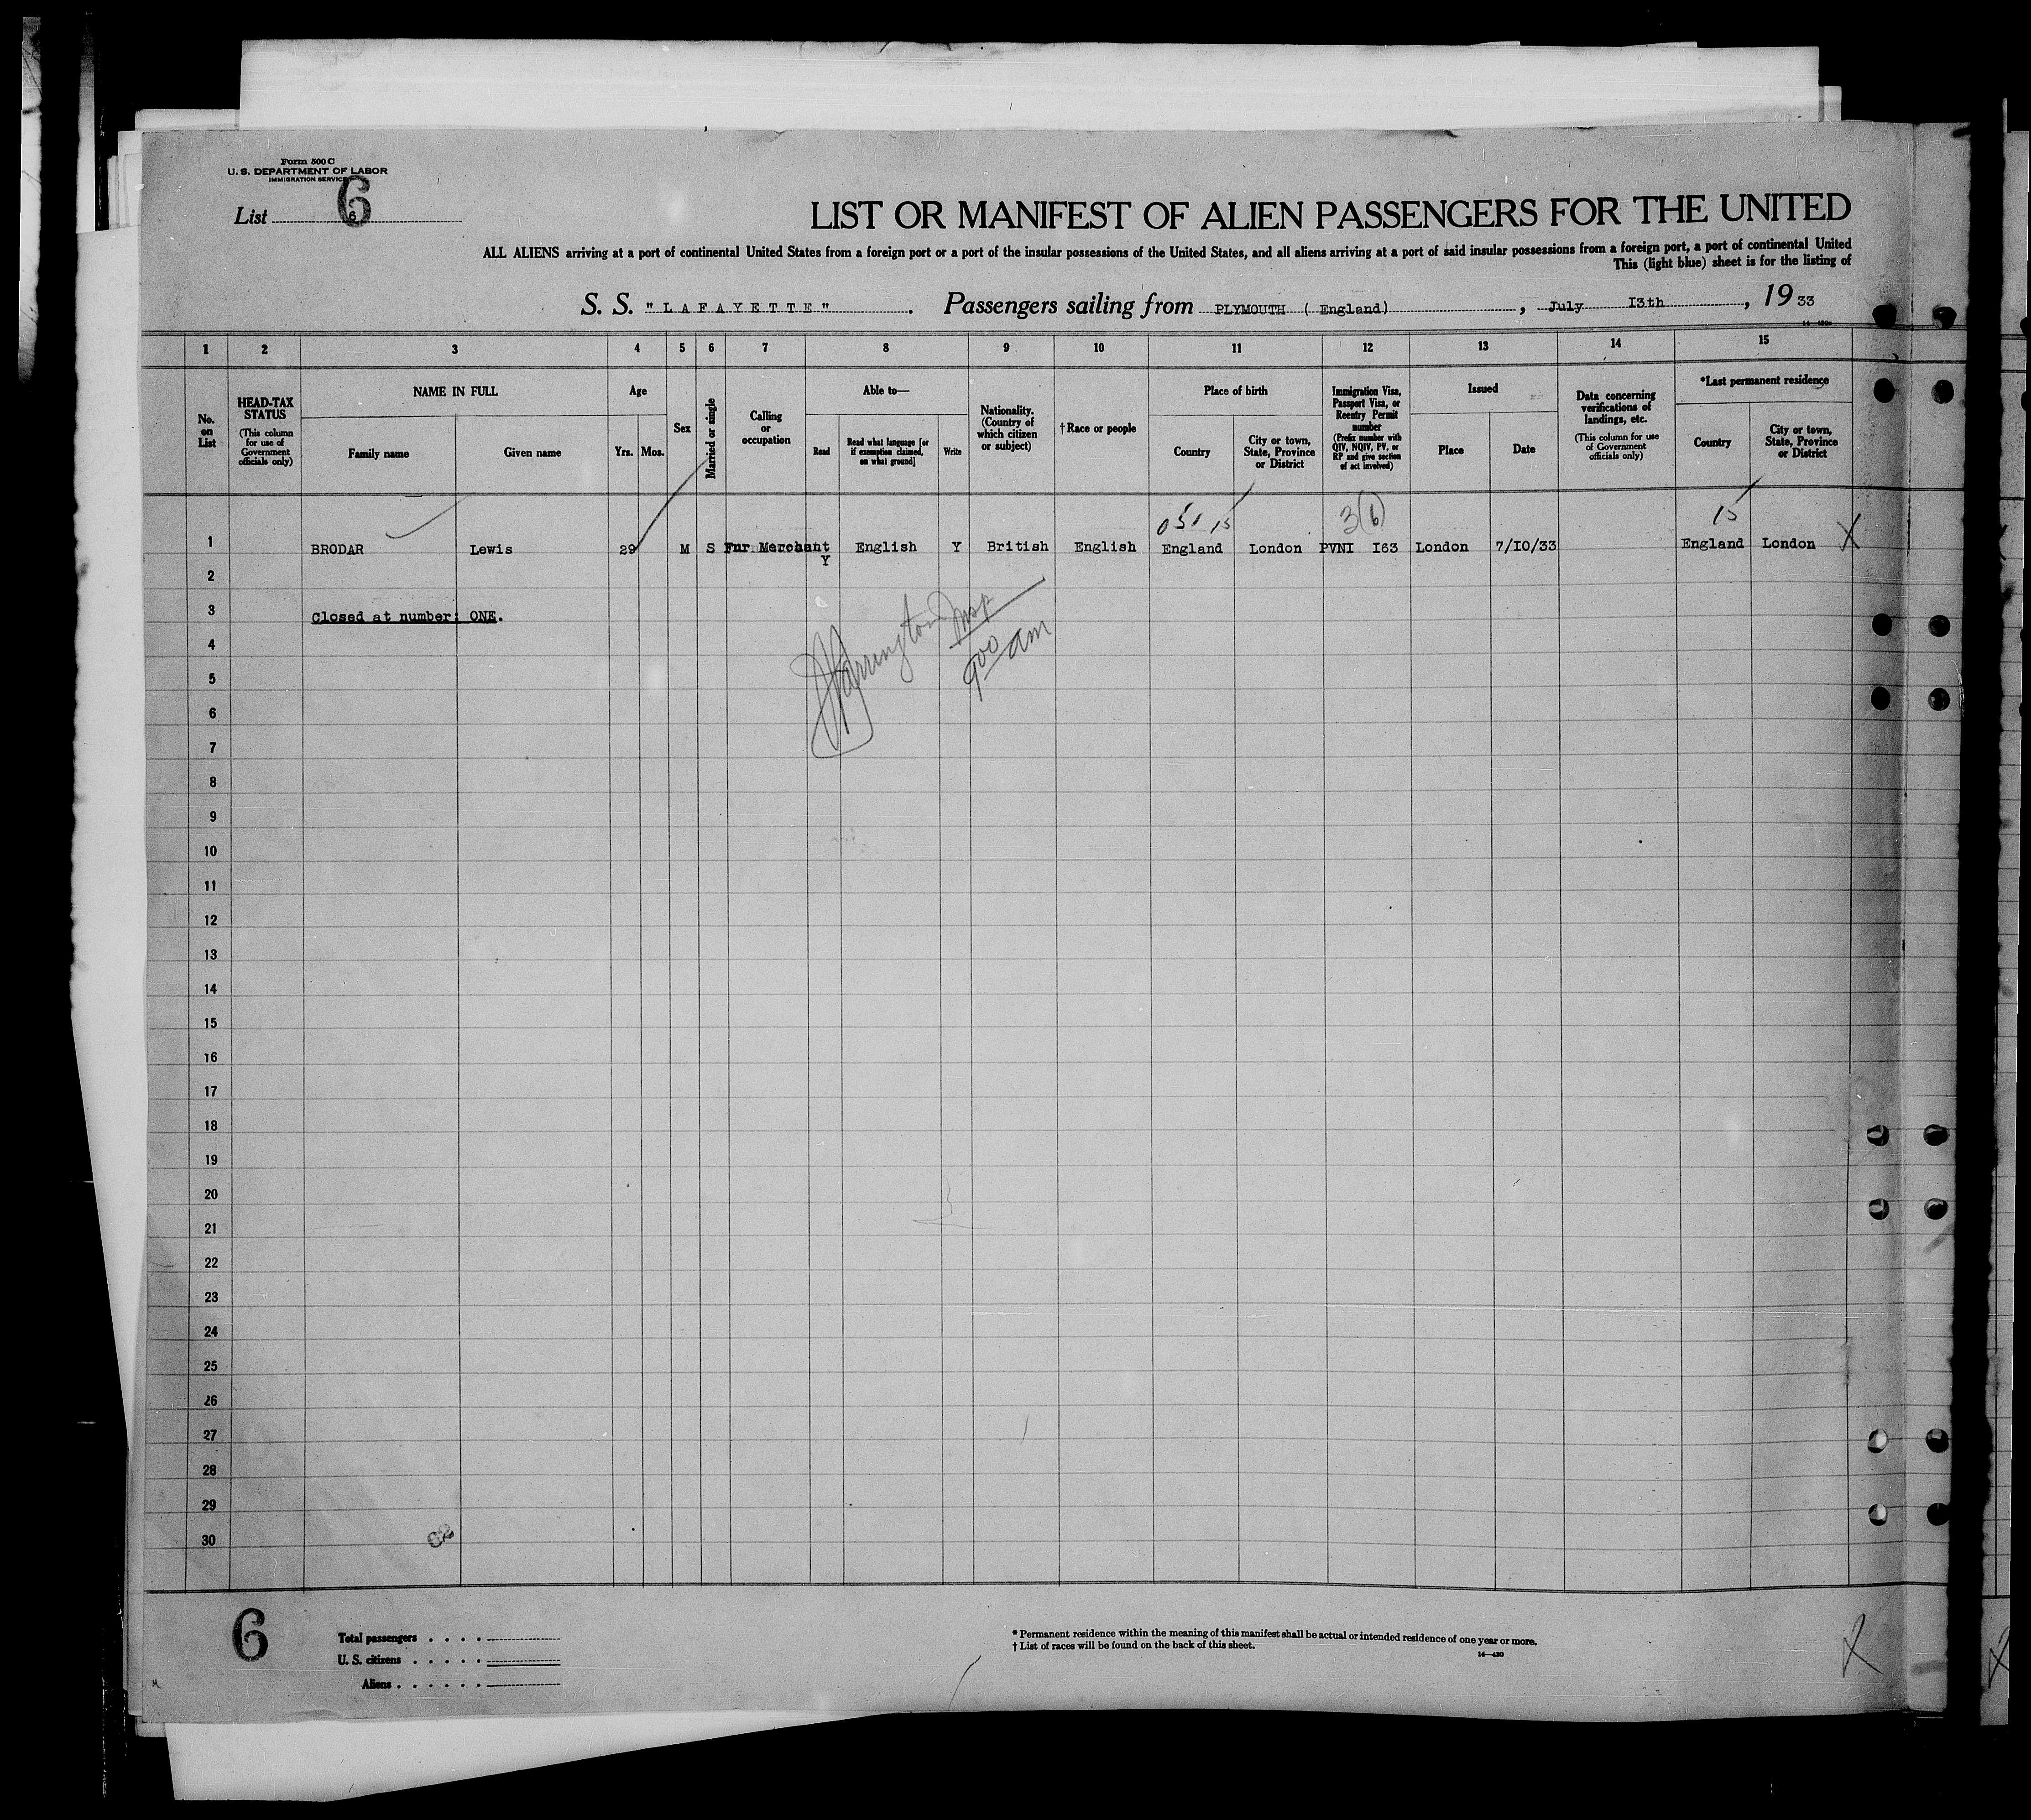 Form 500 C
U. S. DEPARTMENT OF LABOR
IMMIGRATION SERVICE
List 6
6
LIST OR MANIFEST OF ALIEN PASSENGERS FOR THE UNITED
ALL ALIENS arriving at a port of continental United States from a foreign port or a port of the insular possessions of the United States, and all aliens arriving at a port of said insular possessions from a foreign port, a port of continental United
This (light blue) sheet is for the listing of
S. S. "LAFAYETTE". Passengers sailing from PLYMOUTH ( England) , July I3th , 1933
1 2 3 4 5 6 7 8 9 10 11 12 13 14 15
No. on List
HEAD-TAX STATUS
(This column for use of Government officials only)
NAME IN FULL
Family name
Given name
Age
Yrs. Mos.
Sex
Married or single
Calling or occupation
Able to—
Read
Read what language [or if exemption claimed, on what ground]
Write
Nationality. (Country of which citizen or subject)
†Race or people
Place of birth
Country
City or town, State, Province or District
Immigration Visa, Passport Visa, or Reentry Permit number
(Prefix number with QIV, NQIV, PV, or RP and give section of act involved)
Issued
Place
Date
Data concerning verifications of landings, etc.
(This column for use of Government officials only)
*Last permanent residence
Country
City or town, State, Province or District
15 3(b) 15
1 BRODAR Lewis 29 M S Fur Merchant Y English Y British English England London PVNI I63 London 7/I0/33 England London X
2
3 Closed at number: ONE.
4
900 am
5
6
7
8
9
10
11
12
13
14
15
16
17
18
19
20
21
22
23
24
25
26
27
28
29
30
6
Total passengers . . . .
U. S. citizens . . . . .
Aliens . . . . . .
* Permanent residence within the meaning of this manifest shall be actual or intended residence of one year or more.
† List of races will be found on the back of this sheet.
14—430
X